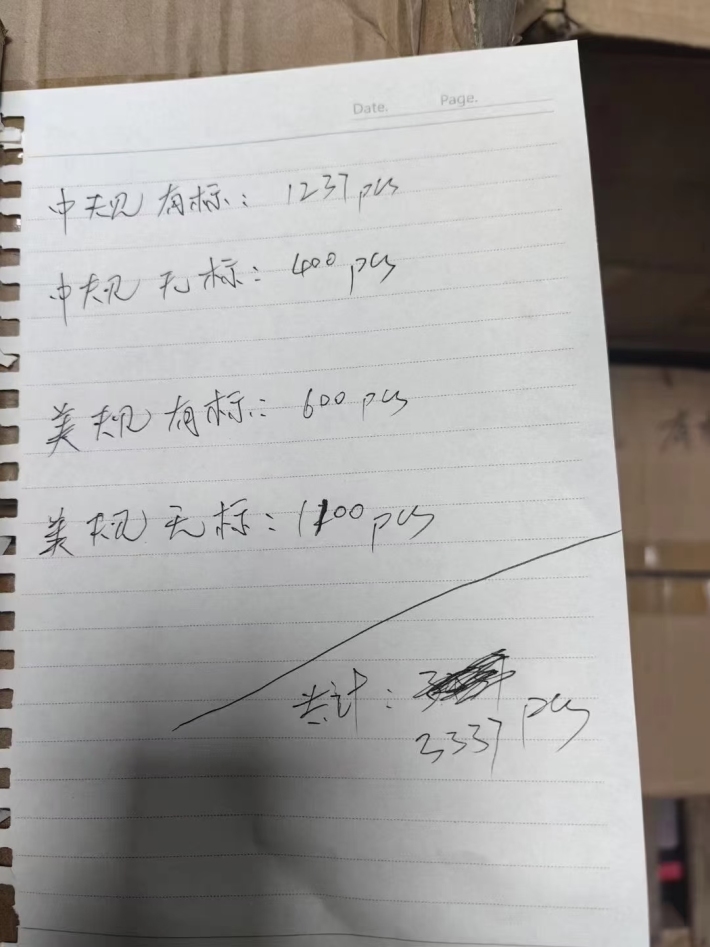 Date.  Page.
中规 有标：1237 pcs
中规 无标：400 pcs
美规 有标：600 pcs
美规 无标：1100 pcs
共计：
3337 pcs
有